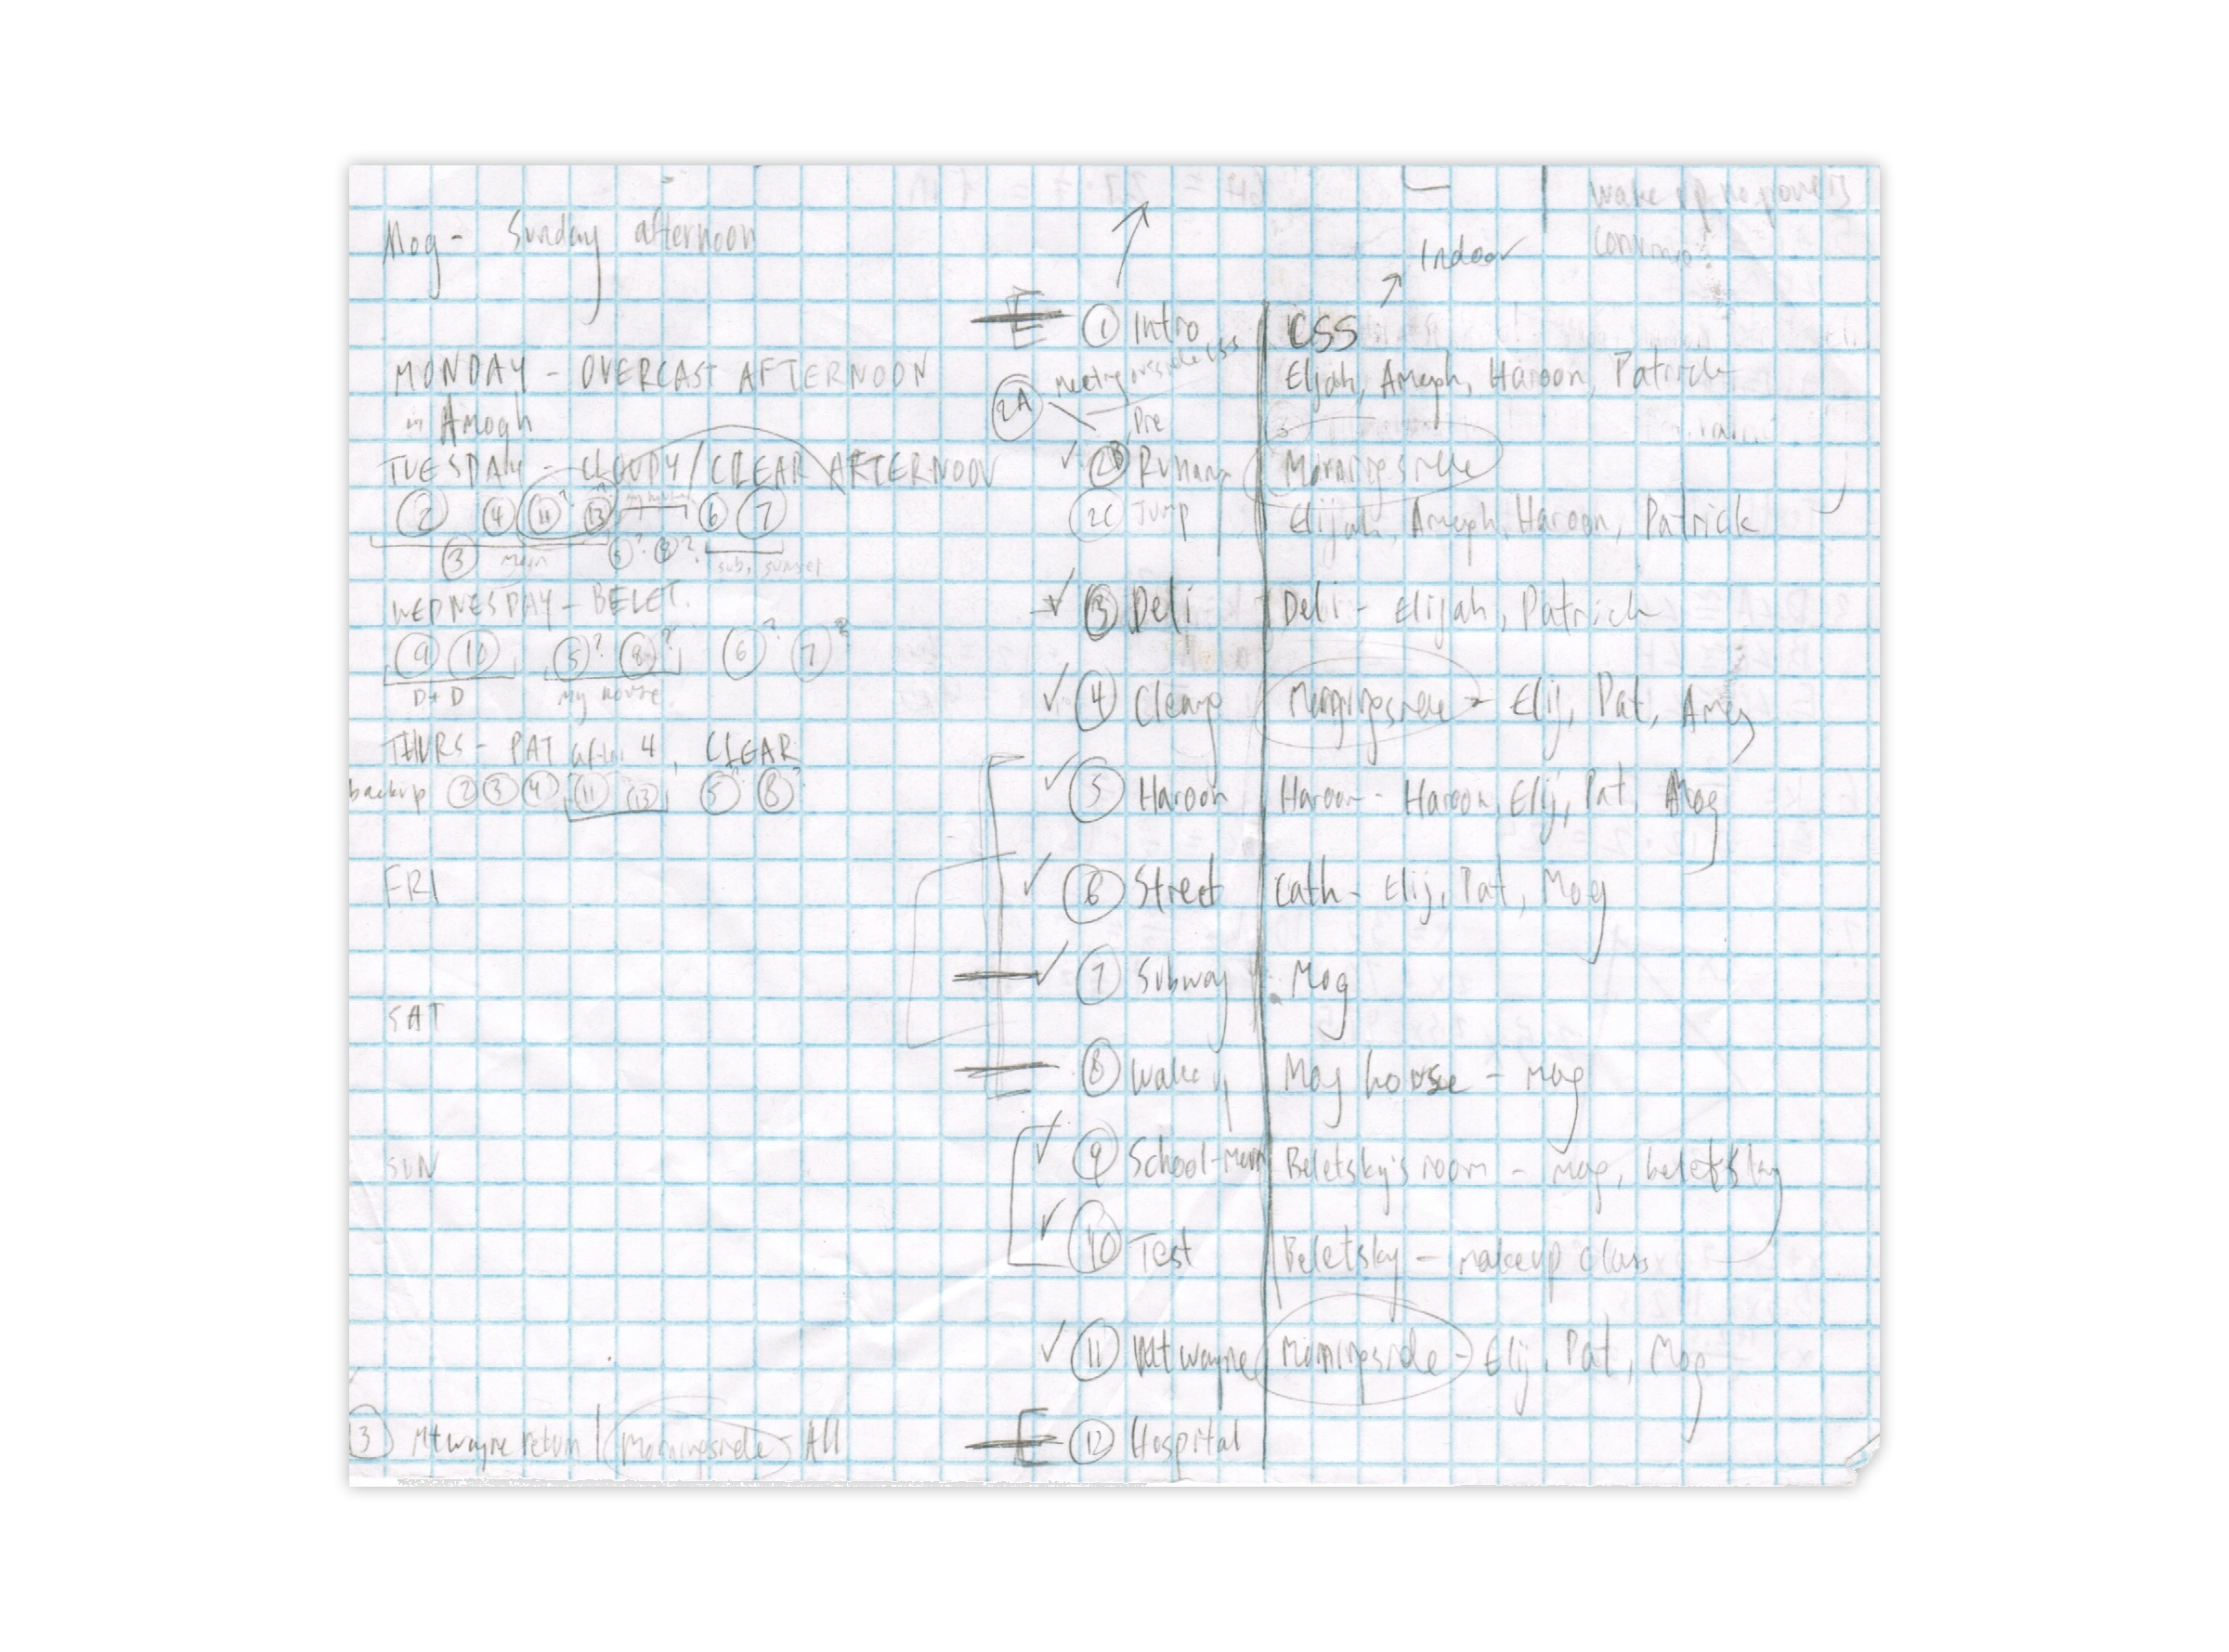 Mog - Sunday afternoon
MONDAY - OVERCAST AFTERNOON
Amogh
TUESDAY - CLOUDY/CLEAR AFTERNOON
2 4 11? 13? 6 7
3 main 5? 8? sub, sunset
WEDNESDAY - BELET.
9 10 5? 8? 6? 7?
D+D my house
THURS - PAT after 4, CLEAR
backup 2 3 4 11 13 5? 8?
FRI
SAT
SUN
13 Mt wayne return | Morningside - All
Indoor
1 Intro CSS
Meeting outside CSS Elijah, Amogh, Haroon, Patrick
2A
Pre
2B Running Morningside
2C Jump Elijah, Amogh, Haroon, Patrick
3 Deli Deli - Elijah, Patrick
4 Cleanup Morningside - Elij, Pat, Amog
5 Haroon Haroon - Haroon, Elij, Pat, Amog
6 Street Cath - Elij, Pat, Mog
7 Subway Mog
8 Wake up Mog house - Mog
9 School-Morn Beletsky's room - Mog, beletsky
10 Test Beletsky - makeup class
11 Mt wayne Morningside - Elij, Pat, Mog
12 Hospital